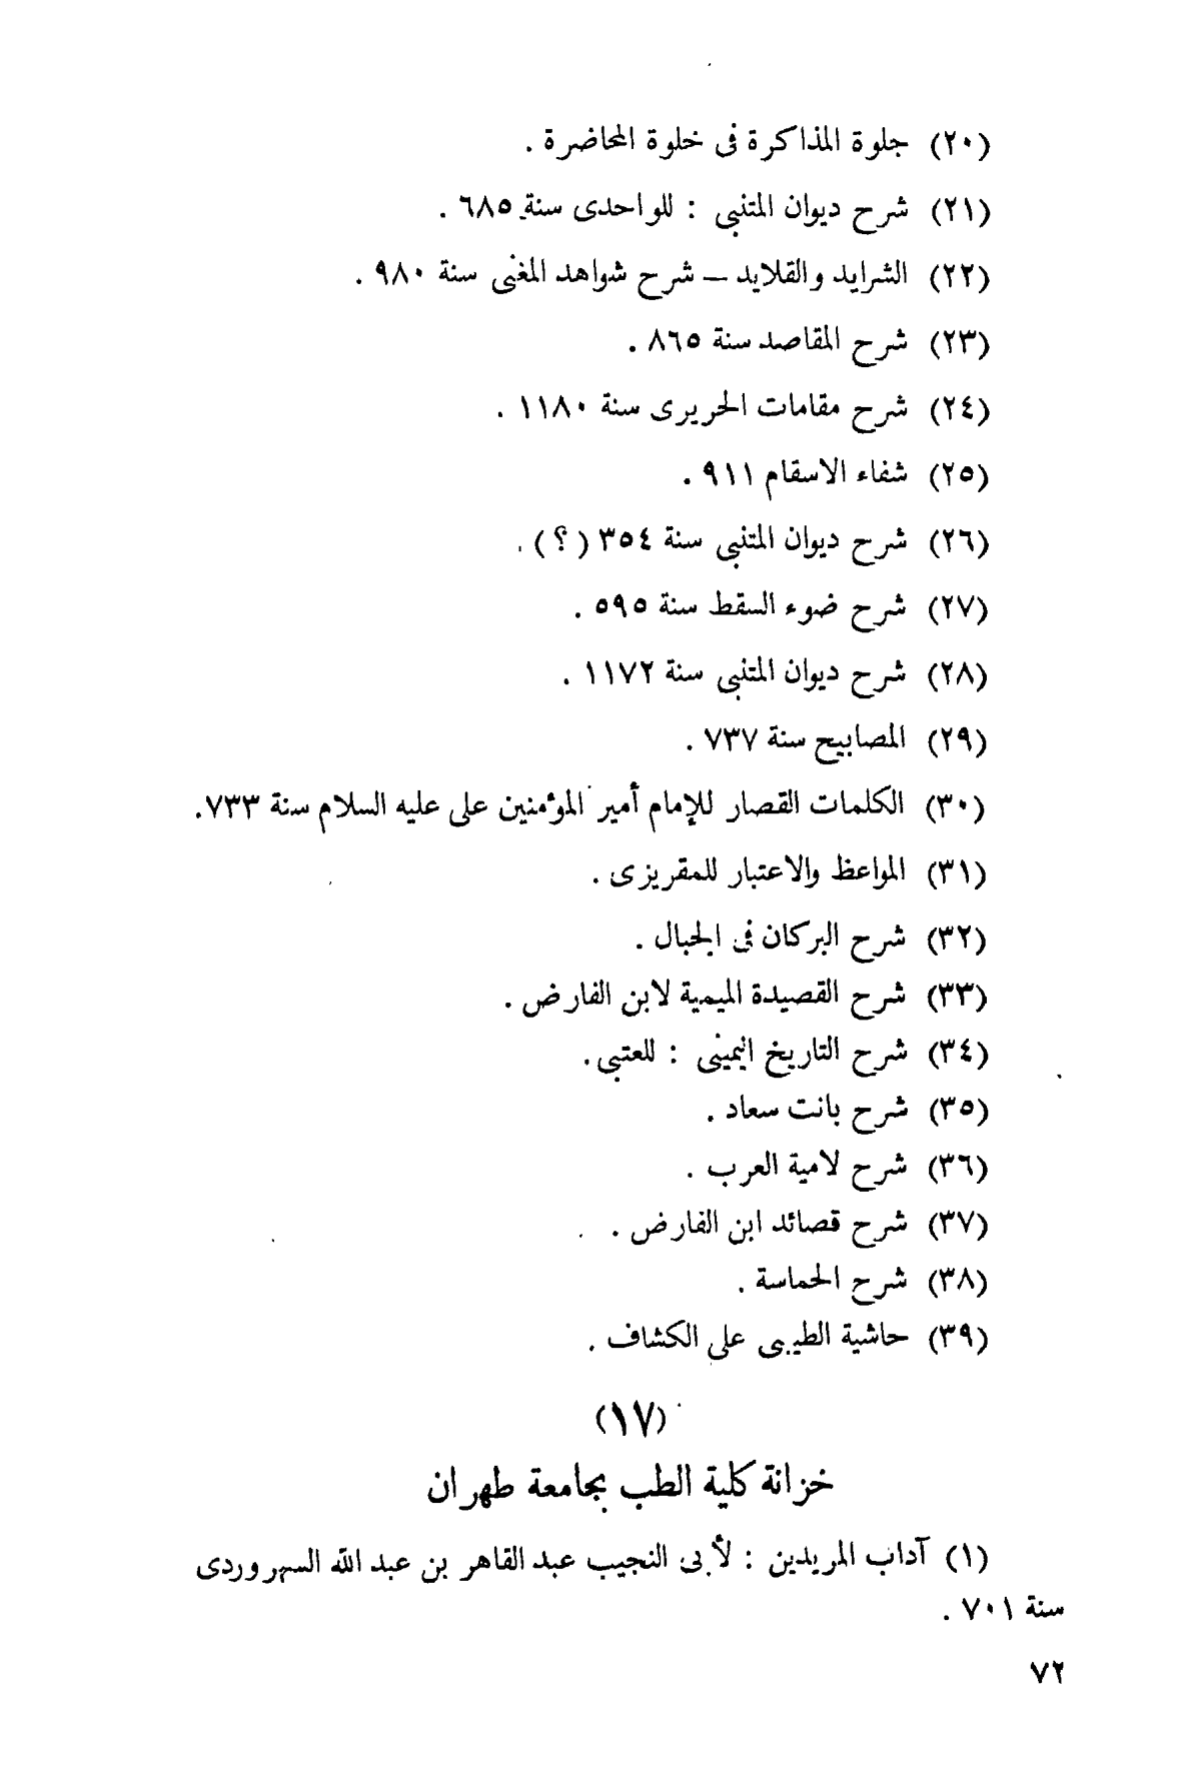 (٢٠) جلوة المذاكرة فى خلوة المحاضرة .
(٢١) شرح ديوان المتنبى : للواحدى سنة ٦٨٥ .
(٢٢) الشرايد والقلايد – شرح شواهد المغنى سنة ٩٨٠ .
(٢٣) شرح المقاصد سنة ٨٦٥ .
(٢٤) شرح مقامات الحريرى سنة ١١٨٠ .
(٢٥) شفاء الاسقام ٩١١ .
(٢٦) شرح ديوان المتنبى سنة ٣٥٤ (؟) .
(٢٧) شرح ضوء السقط سنة ٥٩٥ .
(٢٨) شرح ديوان المتنبى سنة ١١٧٢ .
(٢٩) المصابيح سنة ٧٣٧ .
(٣٠) الكلمات القصار للإمام أمير المؤمنين على عليه السلام سنة ٧٣٣.
(٣١) المواعظ والاعتبار للمقريزى .
(٣٢) شرح البركان فى الجبال .
(٣٣) شرح القصيدة الميمية لابن الفارض .
(٣٤) شرح التاريخ اليمينى : للعتبى .
(٣٥) شرح بانت سعاد .
(٣٦) شرح لامية العرب .
(٣٧) شرح قصائد ابن الفارض .
(٣٨) شرح الحماسة .
(٣٩) حاشية الطيبى على الكشاف .
(١٧)
خزانة كلية الطب بجامعة طهران
(١) آداب المريدين : لأبى النجيب عبد القاهر بن عبد الله السهروردى
سنة ٧٠١ .
٧٢